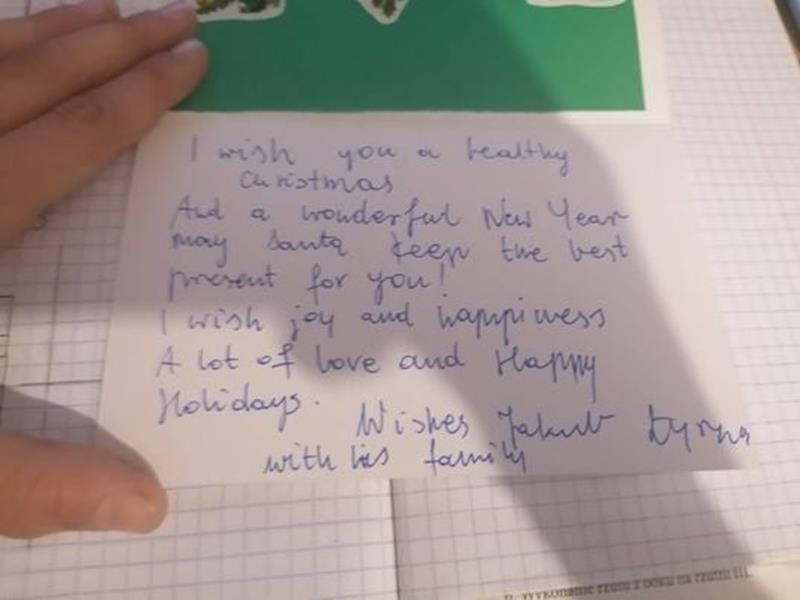 I wish you a healthy
Christmas
And a wonderful New Year
may Santa keep the best
present for you!
I wish joy and happiness
A lot of love and Happy
Holidays.
Wishes Jakub
with his family
Wykonanie rzutu z boku na rzutni III.